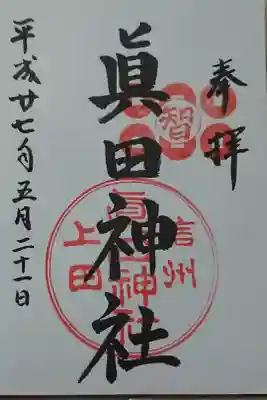 奉拝
智
眞田神社
信州
上田
眞田神社
平成廿七年五月二十一日